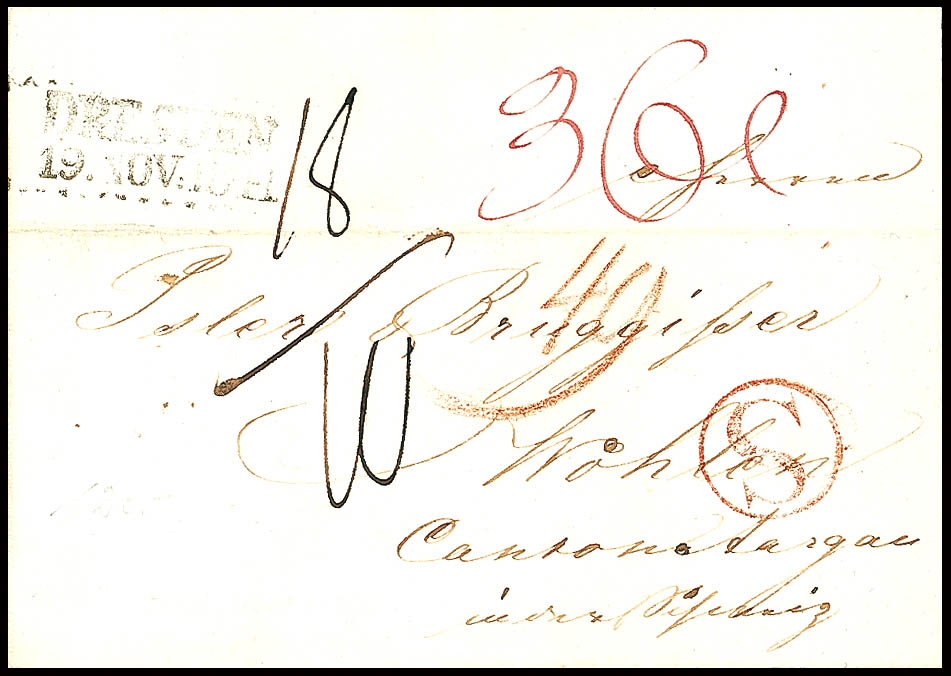 DRESDEN
19. NOV.
18
36
Herren
Isler & Bruggisser
40
10
S
Wöhlen
Canton Aargau
in der Schweiz